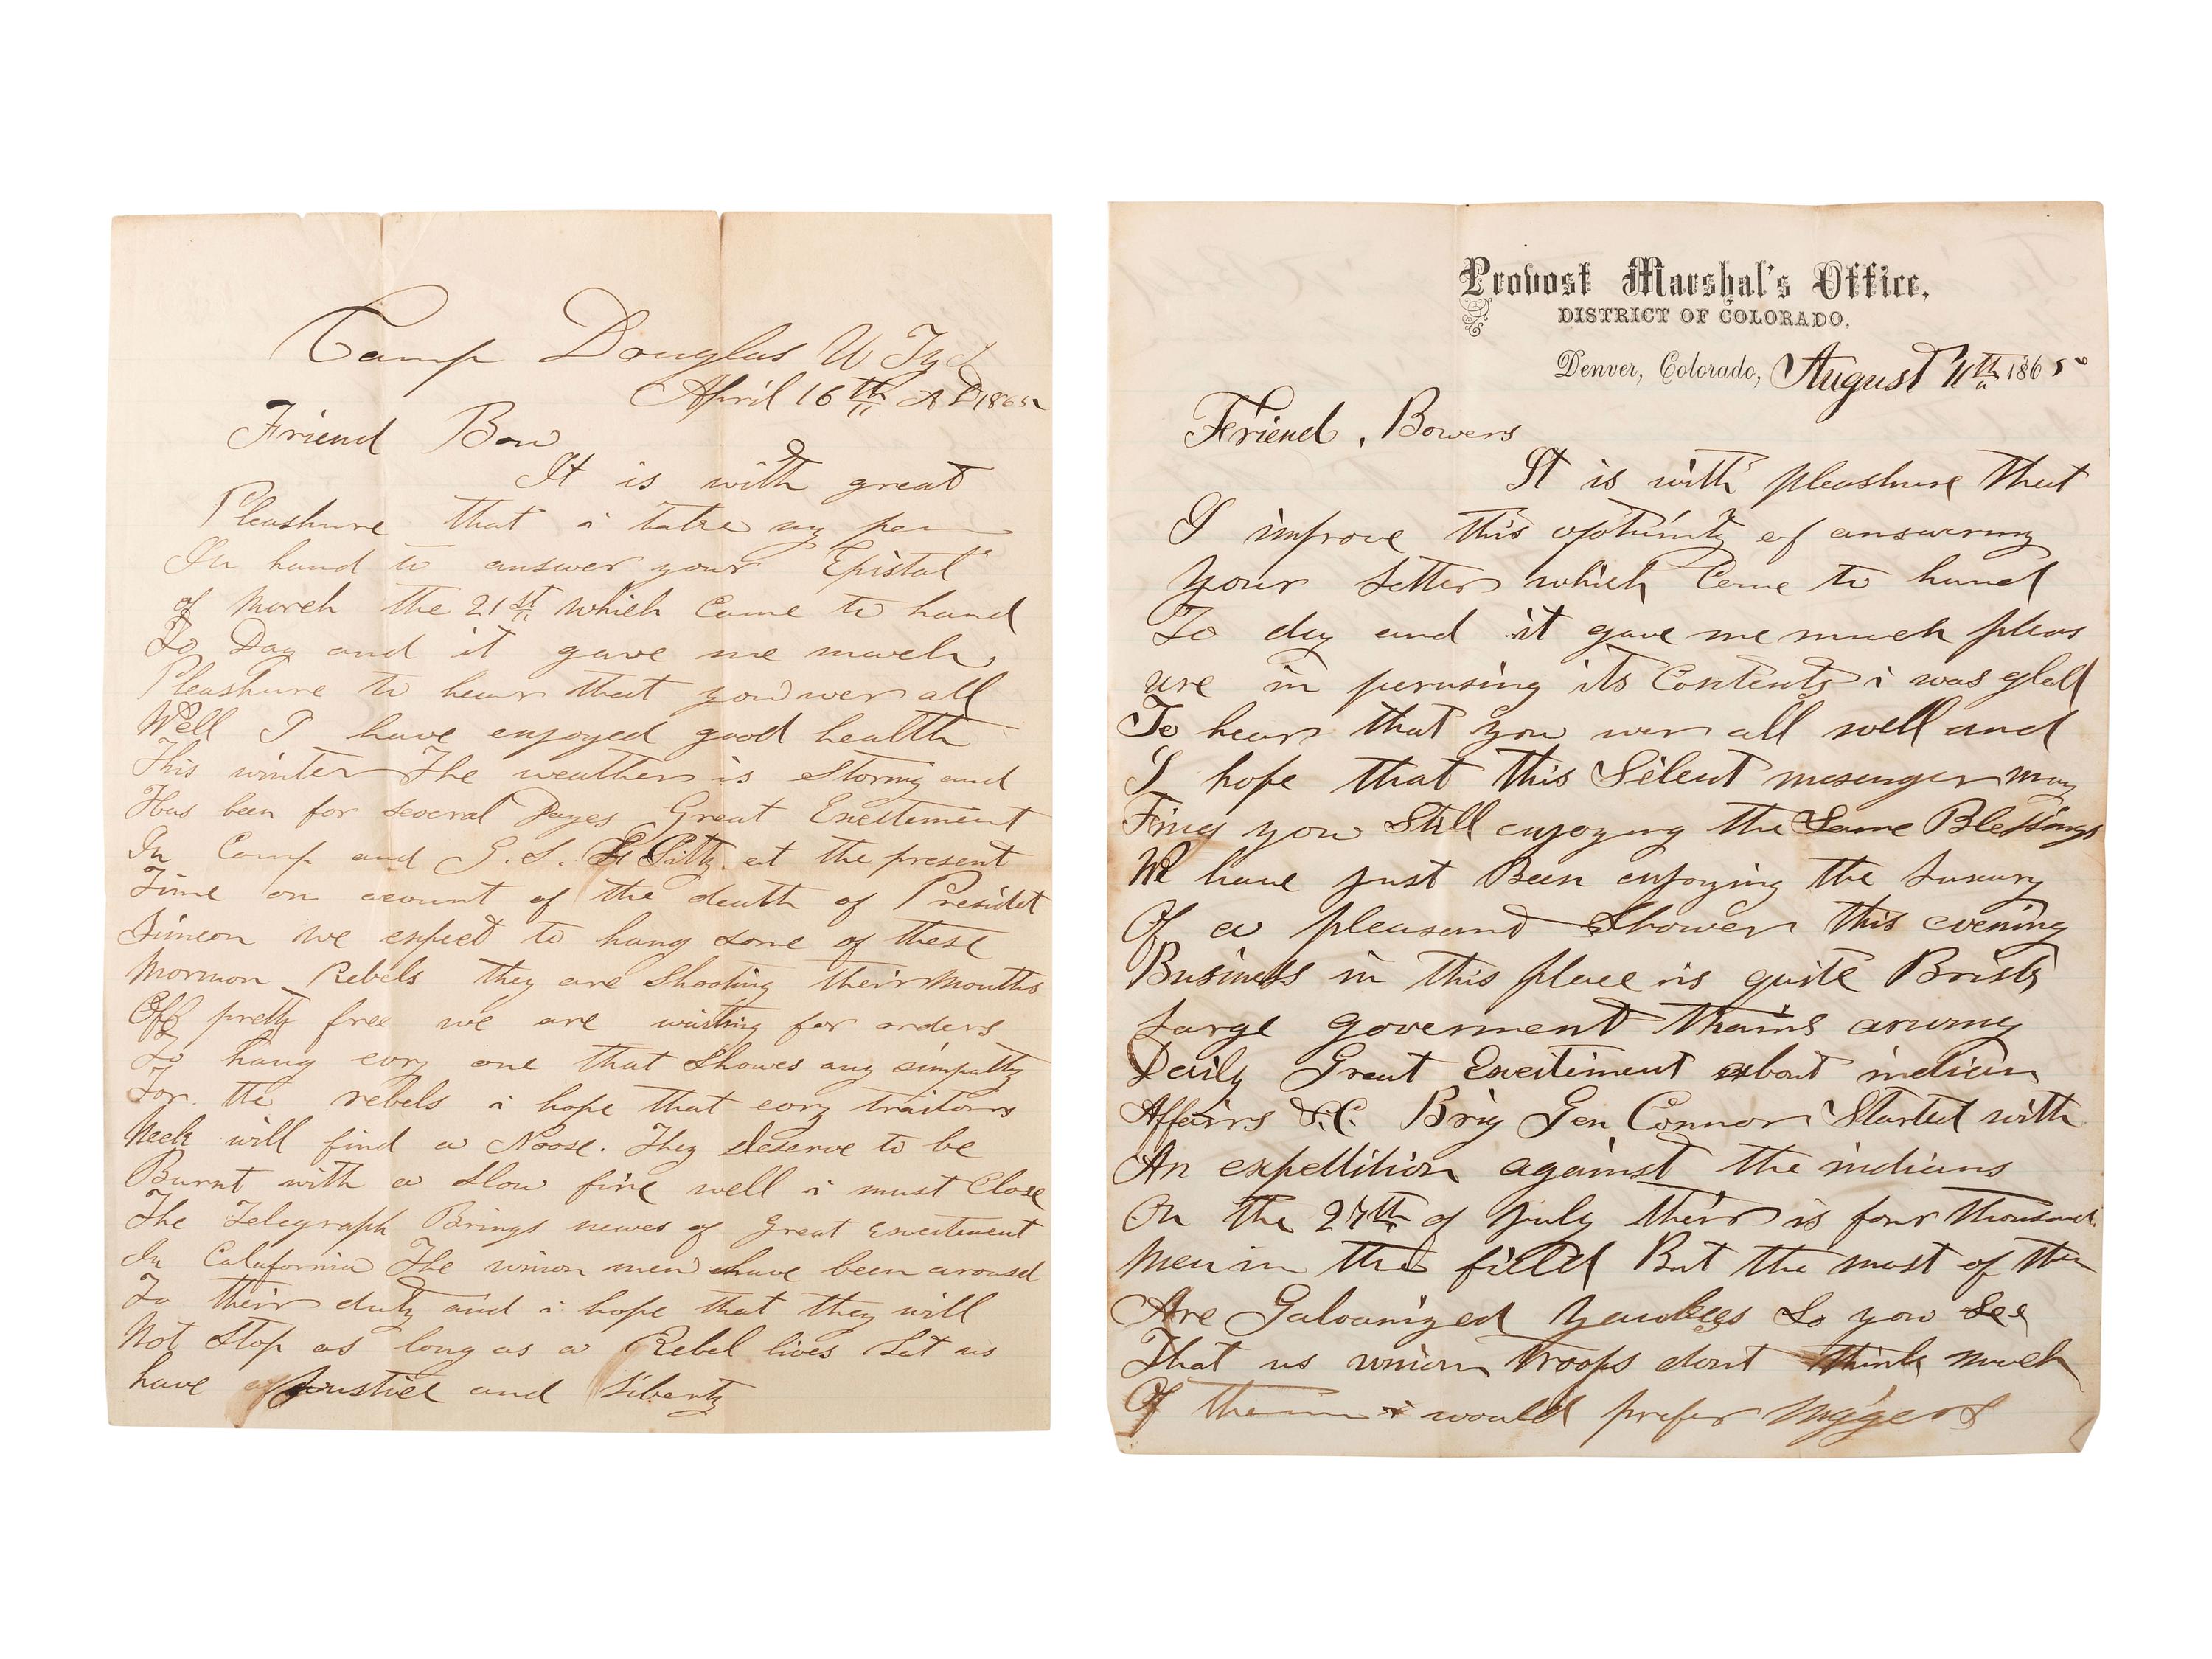 Camp Douglas U Ty
April 16th AD 1865
Friend Bow
It is with great
Pleashure that i take my pen
In hand to answer your Epistal
of March the 21st which Came to hand
To Day and it gave me much
Pleashure to hear that you wer all
Well I have enjoyed good health
This winter The weather is Stormy and
Has been for several Dayes Great Excitement
In Camp and G. S. L City at the present
Time on acount of the death of Presidet
Lincon We expect to hang some of these
Mormon Rebels they are Shooting their Mouths
Off pretty free we are waiting for orders
To hang evry one that Showes any simpatty
For the rebels i hope that evry traitors
Neck will find a Noose. They deserve to be
Burnt with a slow fire well i must Close
The Telegraph Brings newes of Great Excitement
In California The union men have been arousd
To their duty and i hope that they will
Not Stop as long as a Rebel lives Let us
have Justice and Liberty
Provost Marshal's Office,
DISTRICT OF COLORADO.
Denver, Colorado, August 11th 1865
Friend, Bowers
It is with pleashure that
I improve this optunity of answering
Your Letter which Came to hand
To day and it gave me much pleas
ure in perusing its Contents i was glad
To hear that you wer all well and
I hope that this Silent mesenger may
Find you Still enjoying the Same Blessings
We have just Been enjoying the Luxury
Of a pleasand Shower this evening
Business in this place is quite Brisk
Large goverment thains ariving
Daily Great Excitiment about indian
Affairs &.C. Brig Gen Connor Started with
An expedition against the indians
On the 27th of July their is four thousand
Men in the field But the most of them
Are Galvanized Yankees So you See
That us union troops dont think much
Of them i would prefer niggers